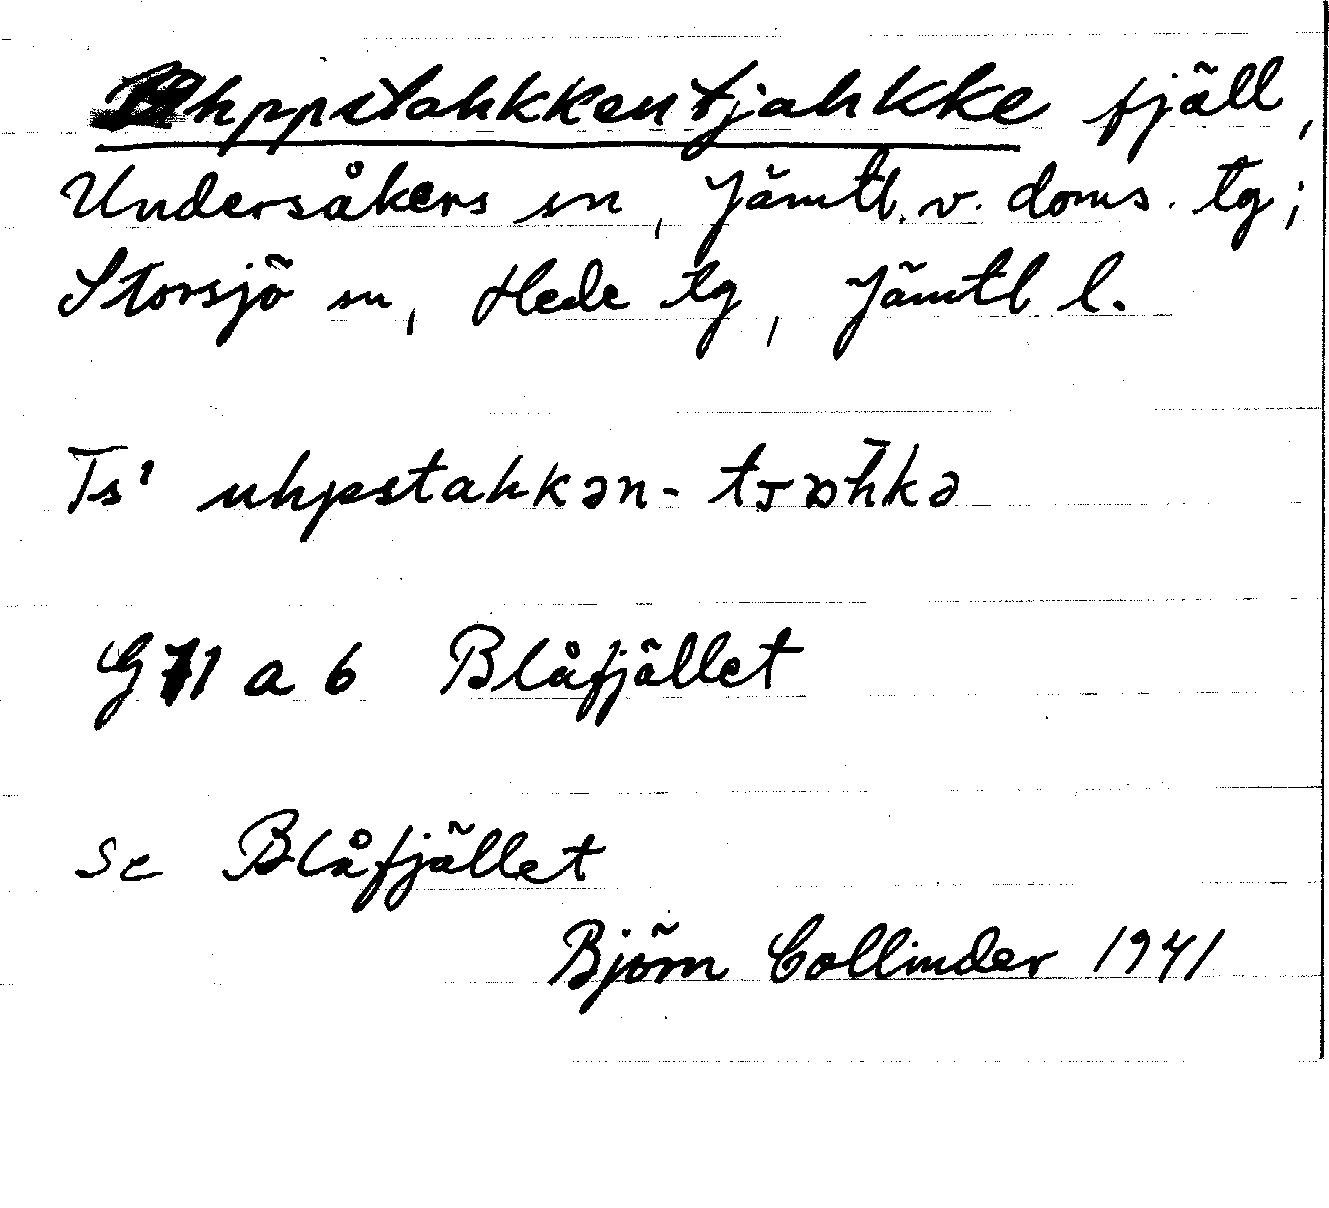 fjäll,
Undersåkers sn, Jämtl. v. doms. tg;
Storsjö sn, Hede tg, Jämtl l.
Ts' uhpstahkən-
G 71 a 6 Blåfjället
se Blåfjället
Björn Collinder 1941